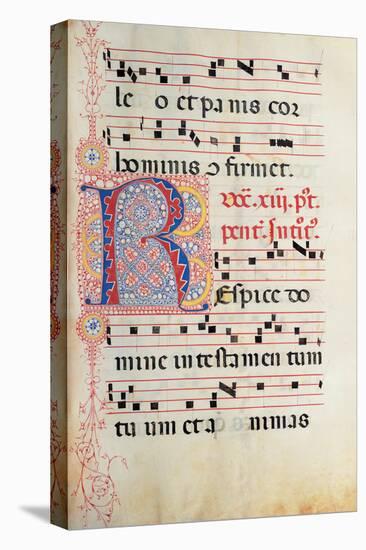 le o et panis cor
hominis o firmet.
Dōc̄. xiij. pt̄.
pent̄. Int̄it̄.
Respice do
mine in testamen tum
tu um et a nimas